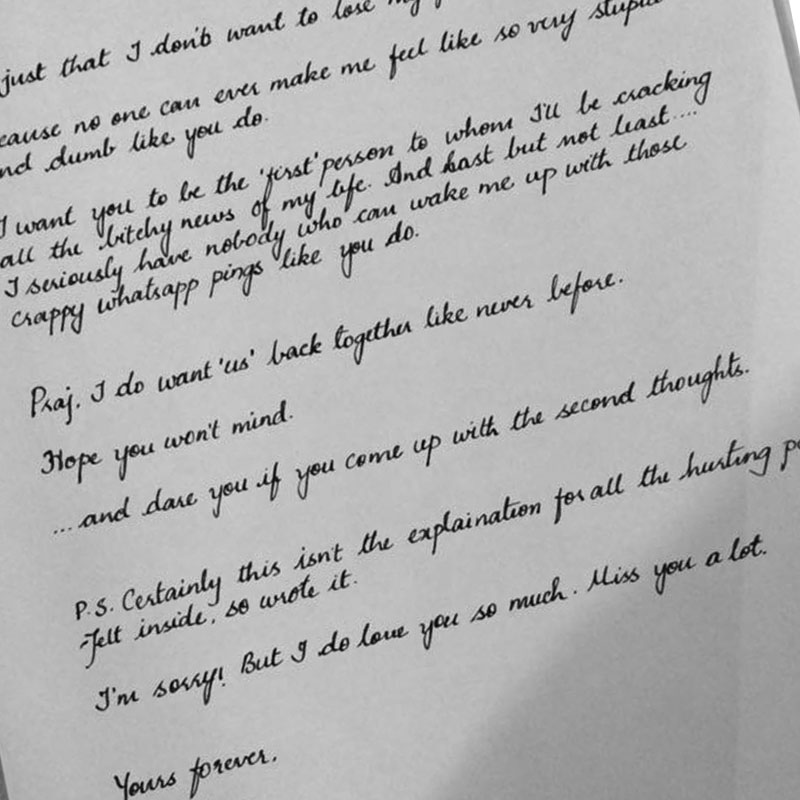 just that I don't want to lose my
cause no one can ever make me feel like so very stupid
nd dumb like you do.
I want you to be the 'first' person to whom I'll be cracking
all the bitchy news of my life. And last but not least....
I seriously have nobody who can wake me up with those
crappy whatsapp pings like you do.
Praj, I do want 'us' back together like never before.
Hope you won't mind.
...and dare you if you come up with the second thoughts.
P.S. Certainly this isn't the explaination for all the hurting
felt inside, so wrote it.
I'm sorry! But I do love you so much. Miss you a lot.
Yours forever.